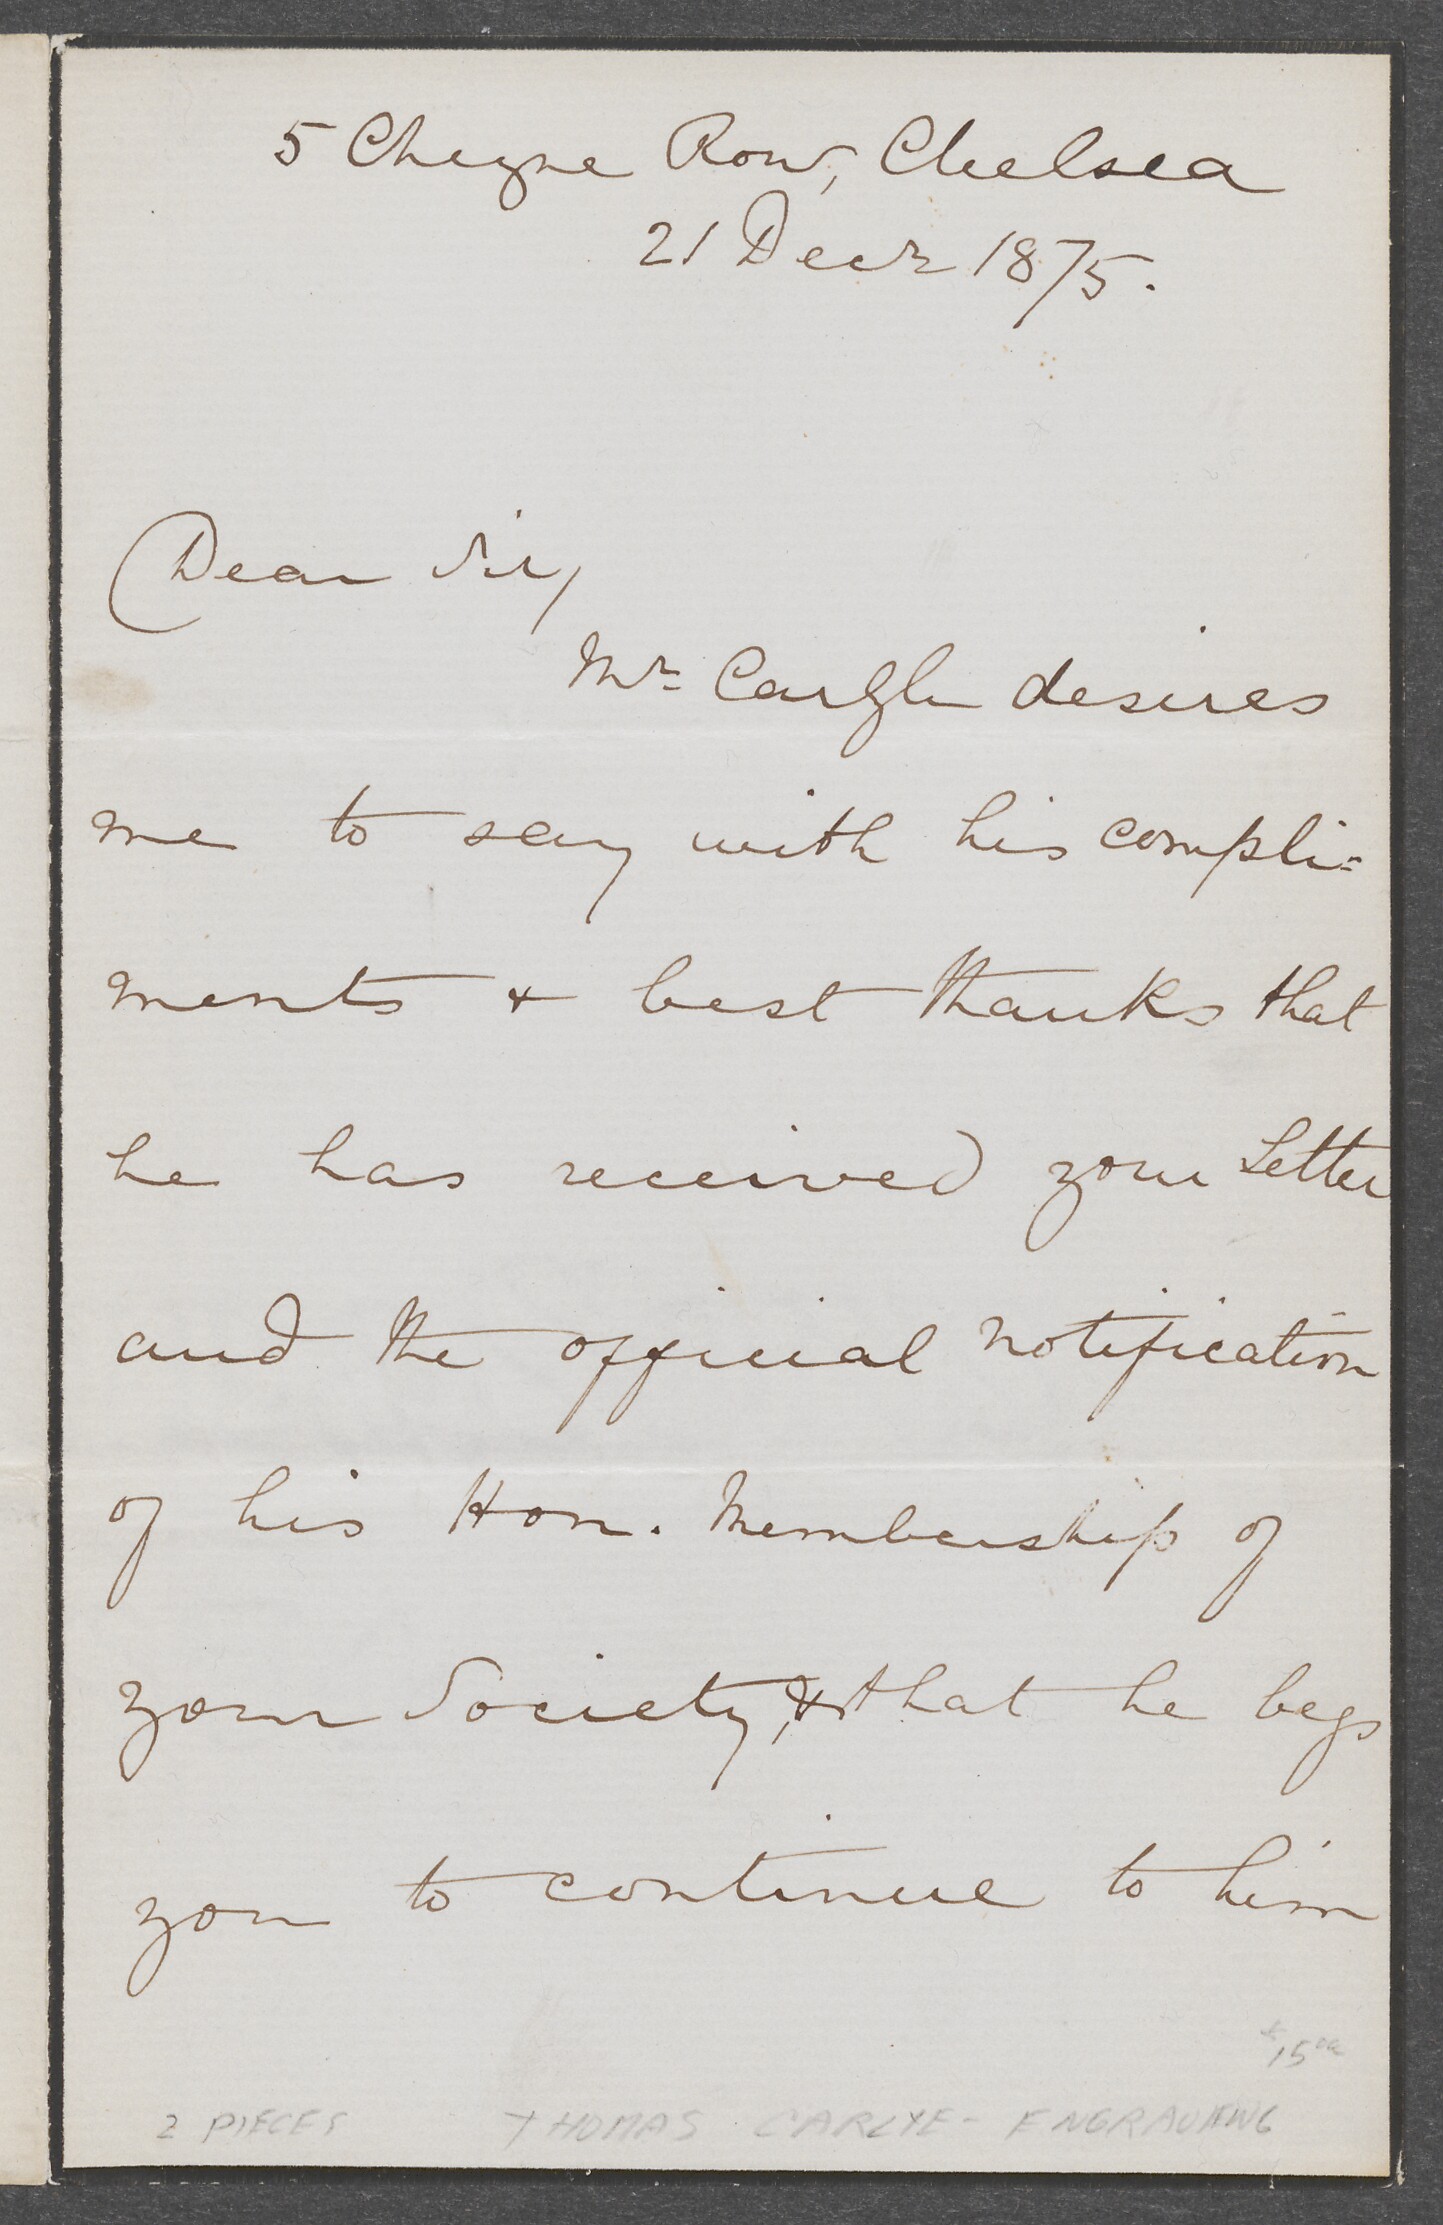 5 Cheyne Row, Chelsea
21 Decr 1875.
Dear Sir,
Mr. Carlyle desires
me to say with his compli=
ments & best thanks that
he has received your Letter
and the official notification
of his Hon. Membership of
your Society, & that he begs
you to continue to him
$15
2 PIECES THOMAS CARLYE - ENGRAVING